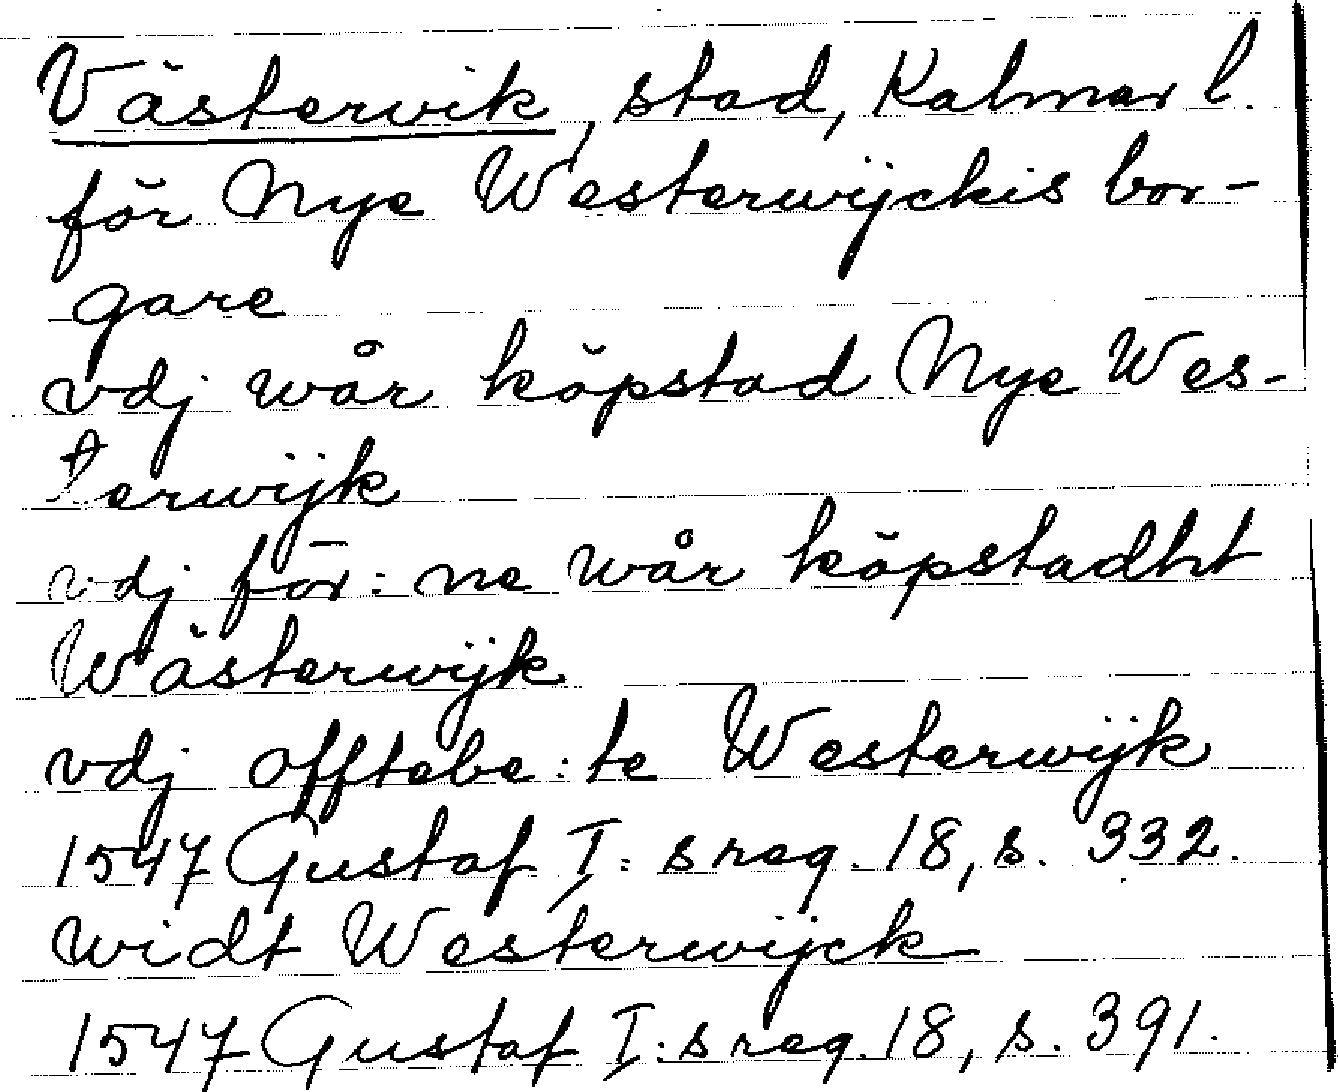 Västervik, stad, Kalmar l.
för Nye Westerwijckis bor-
gare
vdj wår köpstad Nye Wes-
terwijk
vdj för:ne wår köpstadht
Wästerwijk
vdj offtebe:te Westerwijk
1547 Gustaf I:s reg. 18, s. 332.
widt Westerwijck
1547 Gustaf I:s reg. 18, s. 391.